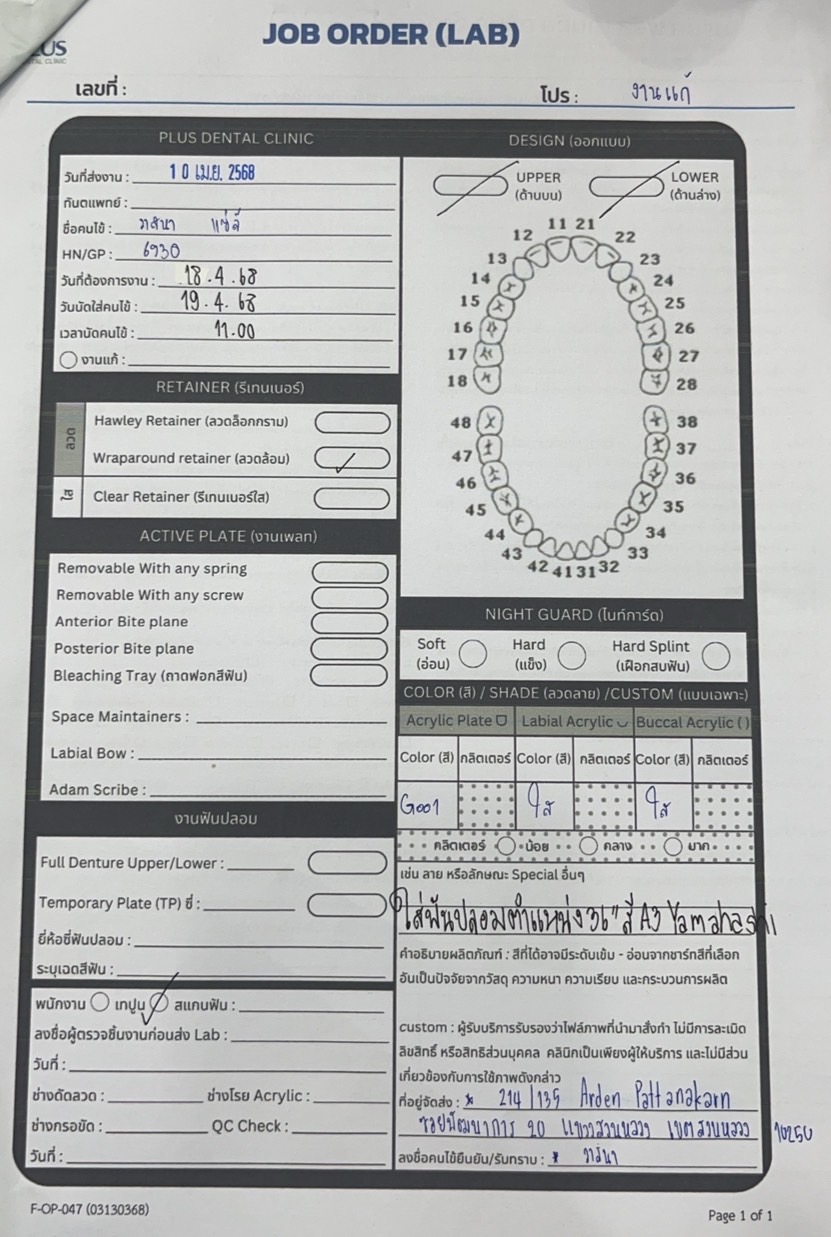 JOB ORDER (LAB)
US
CLINIC
เลขที่ :
โปร : งานแก้
PLUS DENTAL CLINIC
วันที่ส่งงาน : 10 เม.ย. 2568
ทันตแพทย์ :
ชื่อคนไข้ :
HN/GP : 6930
วันที่ต้องการงาน : 18.4.68
วันนัดใส่คนไข้ : 19.4.68
เวลานัดคนไข้ : 11.00
งานแก้ :
RETAINER (รีเทนเนอร์)
ลวด
Hawley Retainer (ลวดล็อกกราม)
Wraparound retainer (ลวดล้อม)
ใส
Clear Retainer (รีเทนเนอร์ใส)
ACTIVE PLATE (งานเพลท)
Removable With any spring
Removable With any screw
Anterior Bite plane
Posterior Bite plane
Bleaching Tray (ถาดฟอกสีฟัน)
Space Maintainers :
Labial Bow :
Adam Scribe :
งานฟันปลอม
Full Denture Upper/Lower :
Temporary Plate (TP) ซี่ :
ยี่ห้อซี่ฟันปลอม :
ระบุเฉดสีฟัน :
พนักงาน เทปูน สแกนฟัน :
ลงชื่อผู้ตรวจชิ้นงานก่อนส่ง Lab :
วันที่ :
ช่างดัดลวด : ช่างโรย Acrylic :
ช่างกรอขัด : QC Check :
วันที่ :
DESIGN (ออกแบบ)
UPPER LOWER
(ด้านบน) (ด้านล่าง)
11 21
12 22
13 23
14 24
15 25
16 26
17 27
18 28
48 38
47 37
46 36
45 35
44 34
43 33
42 41 31 32
NIGHT GUARD (ไนท์การ์ด)
Soft Hard Hard Splint
(อ่อน) (แข็ง) (เฝือกสบฟัน)
COLOR (สี) / SHADE (ลวดลาย) /CUSTOM (แบบเฉพาะ)
Acrylic Plate Labial Acrylic Buccal Acrylic ( )
Color (สี) กลิตเตอร์ Color (สี) กลิตเตอร์ Color (สี) กลิตเตอร์
G001 ใส ใส
กลิตเตอร์ น้อย กลาง มาก
เช่น ลาย หรือลักษณะ Special อื่นๆ
ใส่ฟันปลอมตำแหน่ง 36" สี A3 Yamahashi
คำอธิบายผลิตภัณฑ์ : สีที่ได้อาจมีระดับเข้ม - อ่อนจากชาร์ทสีที่เลือก
อันเป็นปัจจัยจากวัสดุ ความหนา ความเรียบ และกระบวนการผลิต
custom : ผู้รับบริการรับรองว่าไฟล์ภาพที่นำมาสั่งทำ ไม่มีการละเมิด
ลิขสิทธิ์ หรือสิทธิส่วนบุคคล คลินิกเป็นเพียงผู้ให้บริการ และไม่มีส่วน
เกี่ยวข้องกับการใช้ภาพดังกล่าว
ที่อยู่จัดส่ง : * 214/135 Arden Pattanakarn
ซอยพัฒนาการ 20 แขวงสวนหลวง เขตสวนหลวง 10250
ลงชื่อคนไข้ยืนยัน/รับทราบ : *
F-OP-047 (03130368)
Page 1 of 1